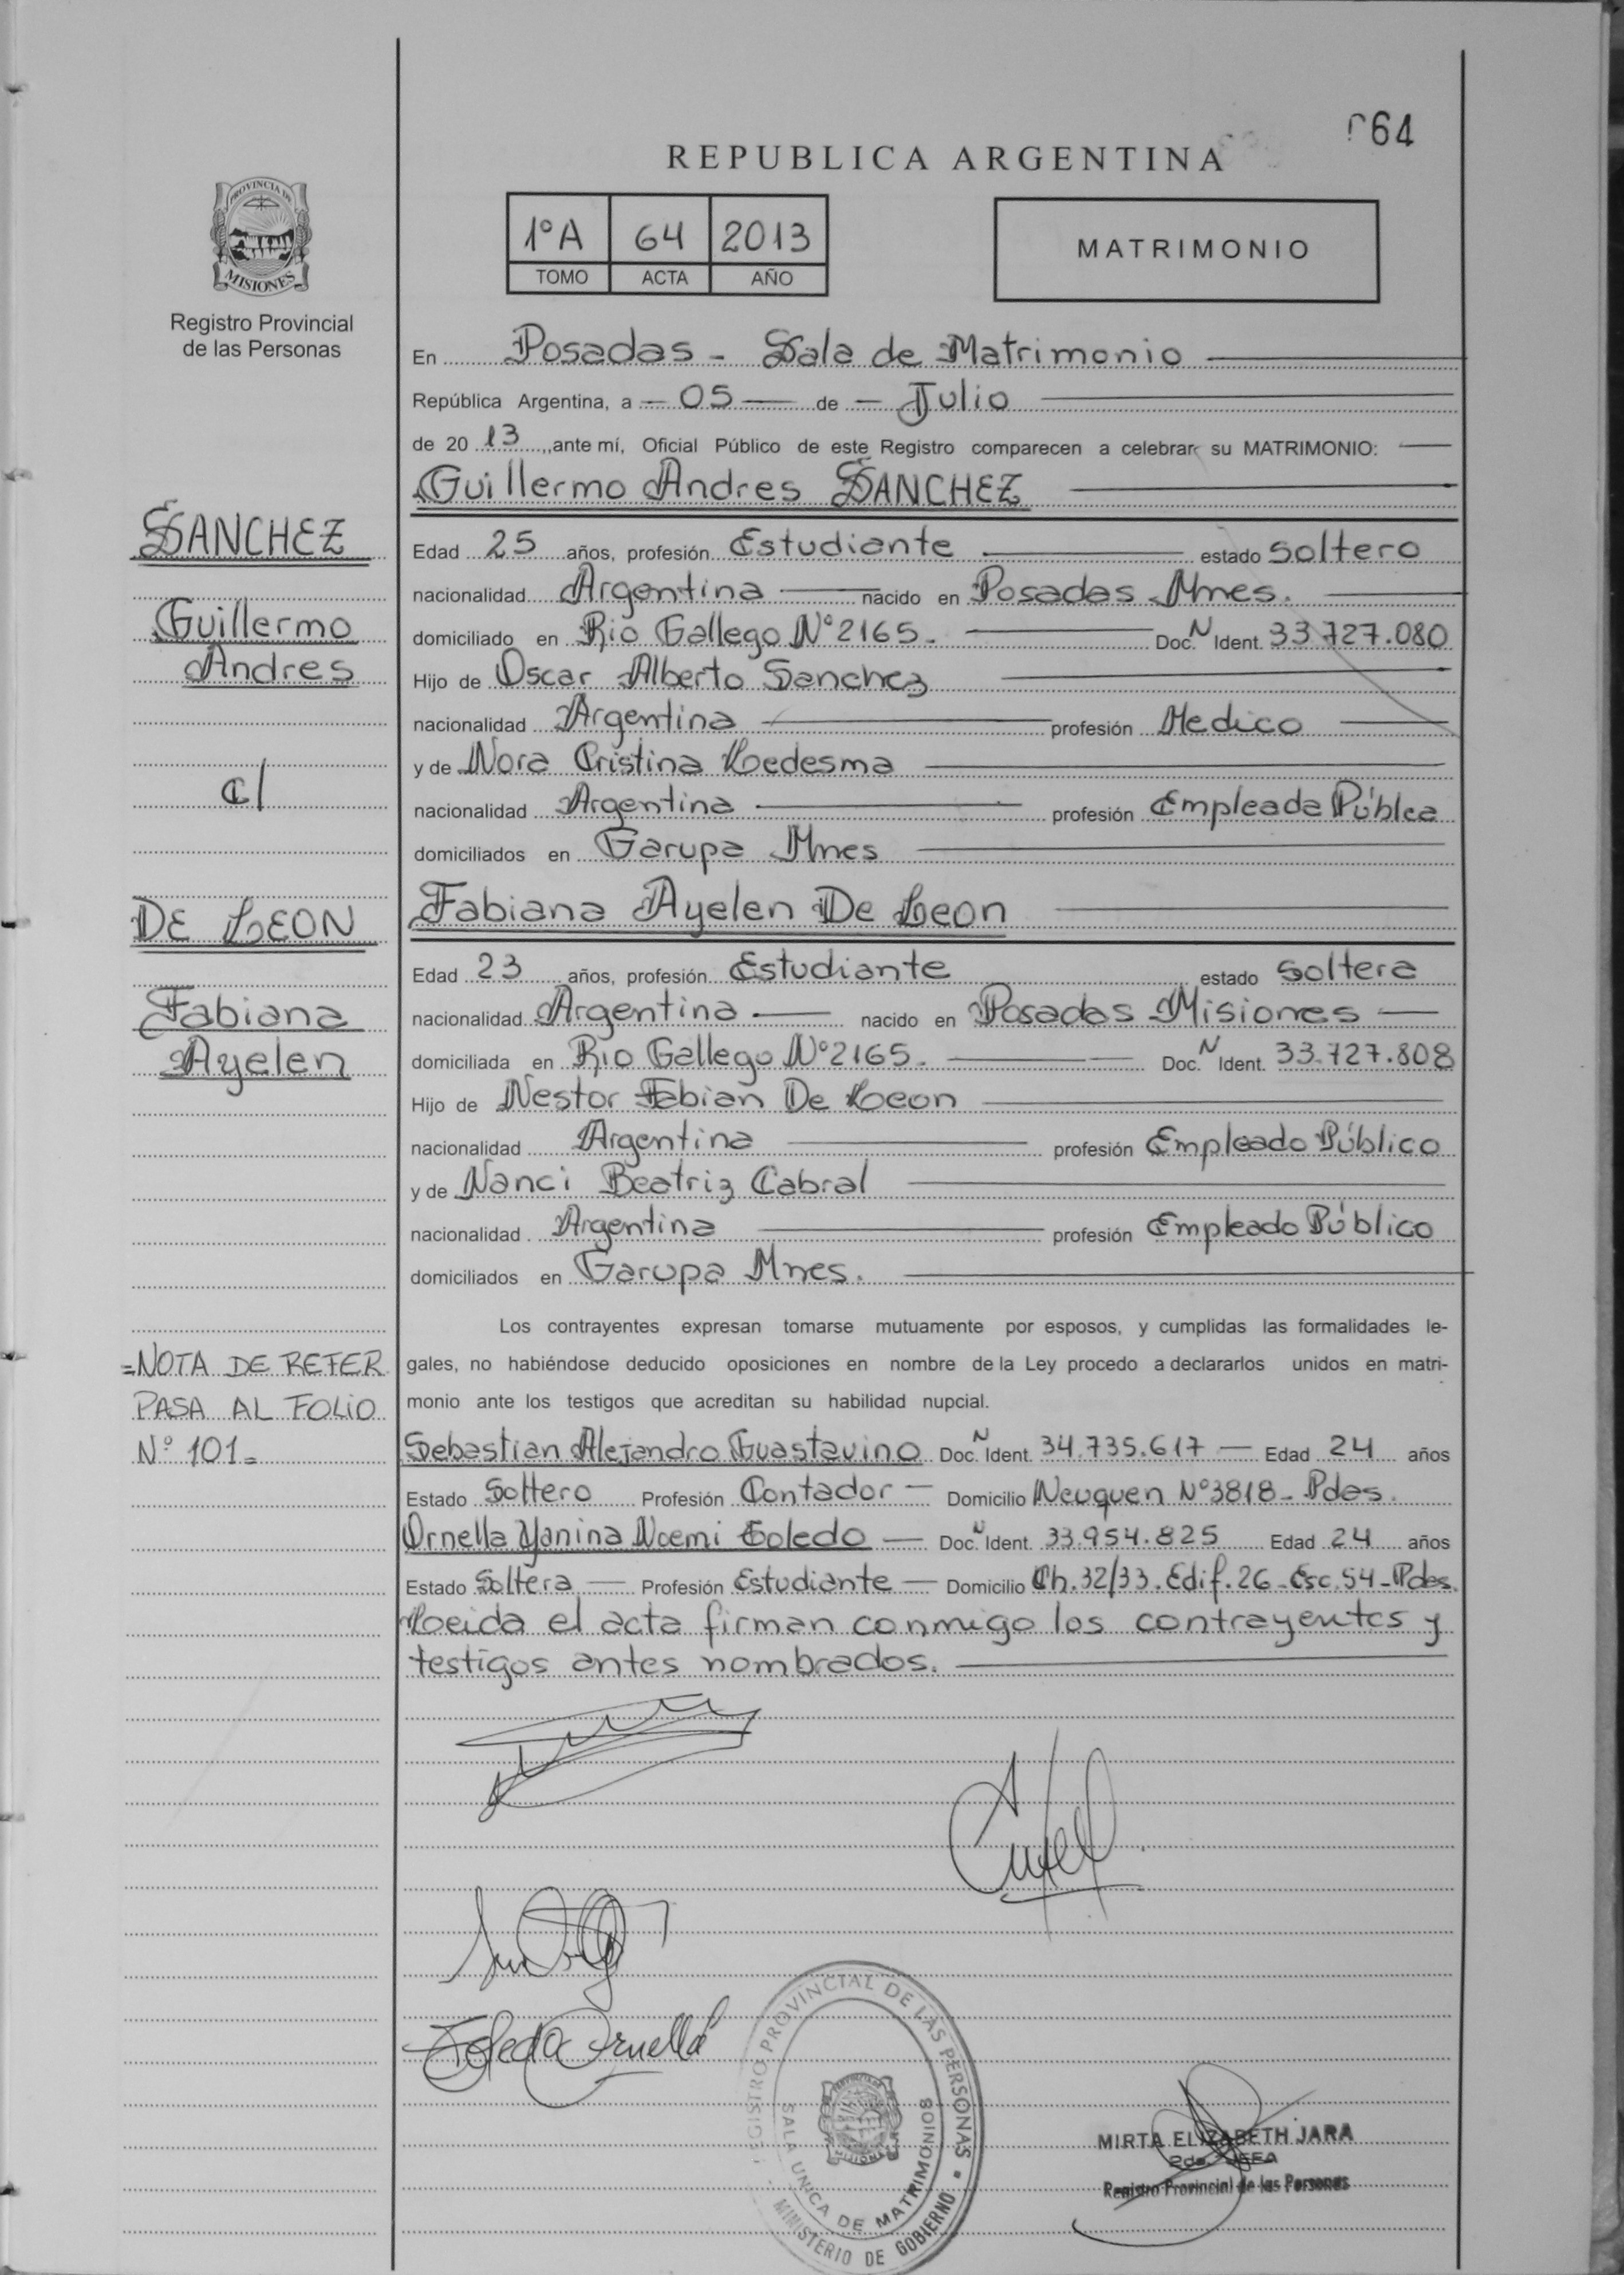 064
REPUBLICA ARGENTINA
PROVINCIA DE
MISIONES
Registro Provincial
de las Personas
1º A 64 2013
TOMO ACTA AÑO
MATRIMONIO
En Posadas - Sala de Matrimonio
República Argentina, a 05 de Julio
de 20 13, ante mí, Oficial Público de este Registro comparecen a celebrar su MATRIMONIO:
Guillermo Andres SANCHEZ
SANCHEZ
Guillermo
Andres
c/
DE LEON
Fabiana
Ayelen
Edad 25 años, profesión Estudiante estado Soltero
nacionalidad Argentina nacido en Posadas Mnes.
domiciliado en Rio Gallego Nº 2165. Doc. N Ident. 33.727.080
Hijo de Oscar Alberto Sanchez
nacionalidad Argentina profesión Medico
y de Nora Cristina Ledesma
nacionalidad Argentina profesión Empleada Públca
domiciliados en Garupa Mnes
Fabiana Ayelen De Leon
Edad 23 años, profesión Estudiante estado Soltera
nacionalidad Argentina nacido en Posadas Misiones
domiciliada en Rio Gallego Nº 2165. Doc. N Ident. 33.727.808
Hijo de Nestor Fabian De Leon
nacionalidad Argentina profesión Empleado Público
y de Nanci Beatriz Cabral
nacionalidad Argentina profesión Empleado Público
domiciliados en Garupa Mnes.
Los contrayentes expresan tomarse mutuamente por esposos, y cumplidas las formalidades le-
gales, no habiéndose deducido oposiciones en nombre de la Ley procedo a declararlos unidos en matri-
monio ante los testigos que acreditan su habilidad nupcial.
=NOTA DE REFER
PASA AL FOLIO
Nº 101=
Sebastian Alejandro Guastavino Doc. N Ident. 34.735.617 Edad 24 años
Estado Soltero Profesión Contador Domicilio Neuquen Nº 3818 - Pdas.
Ornella Yanina Noemi Toledo Doc. N Ident. 33.954.825 Edad 24 años
Estado Soltera Profesión Estudiante Domicilio Ch. 32/33. Edif. 26 - Esc. 54 - Pdas.
Leida el acta firman conmigo los contrayentes y
testigos antes nombrados.
Toledo Ornella
REGISTRO PROVINCIAL DE LAS PERSONAS
SALA UNICA DE MATRIMONIOS
MINISTERIO DE GOBIERNO
MIRTA ELIZABETH JARA
2da. JEFA
Registro Provincial de las Personas